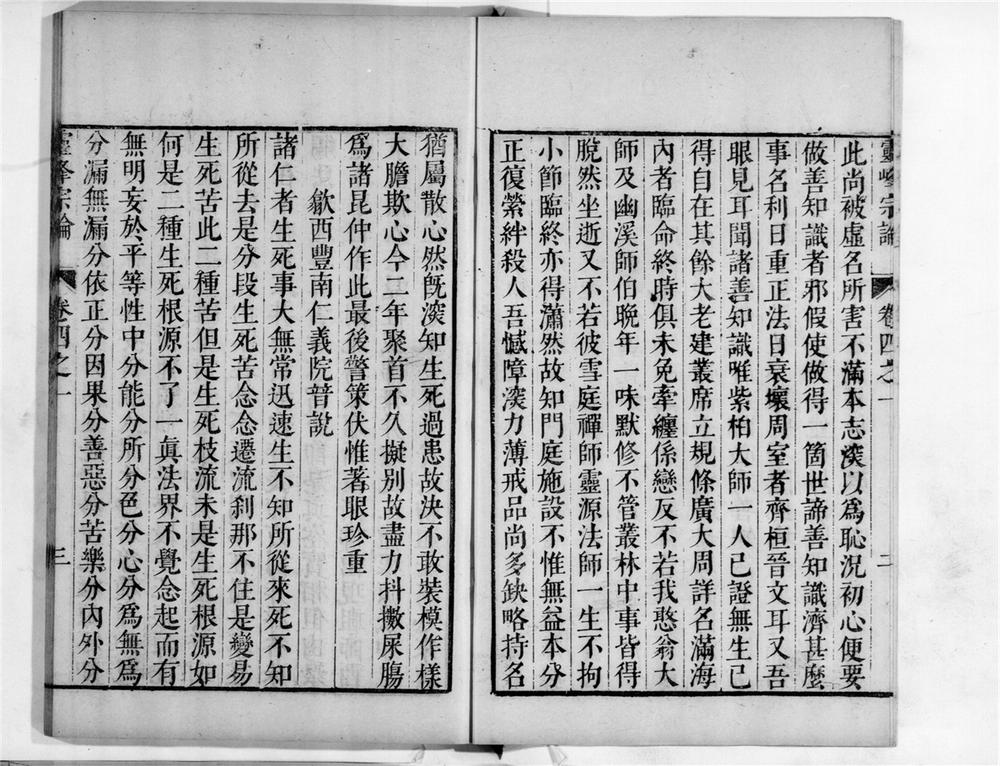 靈峰宗論 卷四之一 二
此尚被虛名所害不滿本志深以爲恥況初心便要
做善知識者邪假使做得一箇世諦善知識濟甚麼
事名利日重正法日衰壞周室者齊桓晉文耳又吾
眼見耳聞諸善知識唯紫柏大師一人已證無生已
得自在其餘大老建叢席立規條廣大周詳名滿海
內者臨命終時俱未免牽纏係戀反不若我憨翁大
師及幽溪師伯晚年一味默修不管叢林中事皆得
脫然坐逝又不若彼雪庭禪師靈源法師一生不拘
小節臨終亦得瀟然故知門庭施設不惟無益本分
正復縈絆殺人吾憾障深力薄戒品尚多缺略持名
猶屬散心然旣深知生死過患故決不敢裝模作樣
大膽欺心今二年聚首不久擬別故盡力抖擻屎腸
爲諸昆仲作此最後警策伏惟著眼珍重
歙西豐南仁義院普說
諸仁者生死事大無常迅速生不知所從來死不知
所從去是分段生死苦念念遷流刹那不住是變易
生死苦此二種苦但是生死枝流未是生死根源如
何是二種生死根源不了一眞法界不覺念起而有
無明妄於平等性中分能分所分色分心分爲無爲
分漏無漏分依正分因果分善惡分苦樂分內外分
靈峰宗論 卷四之一 三